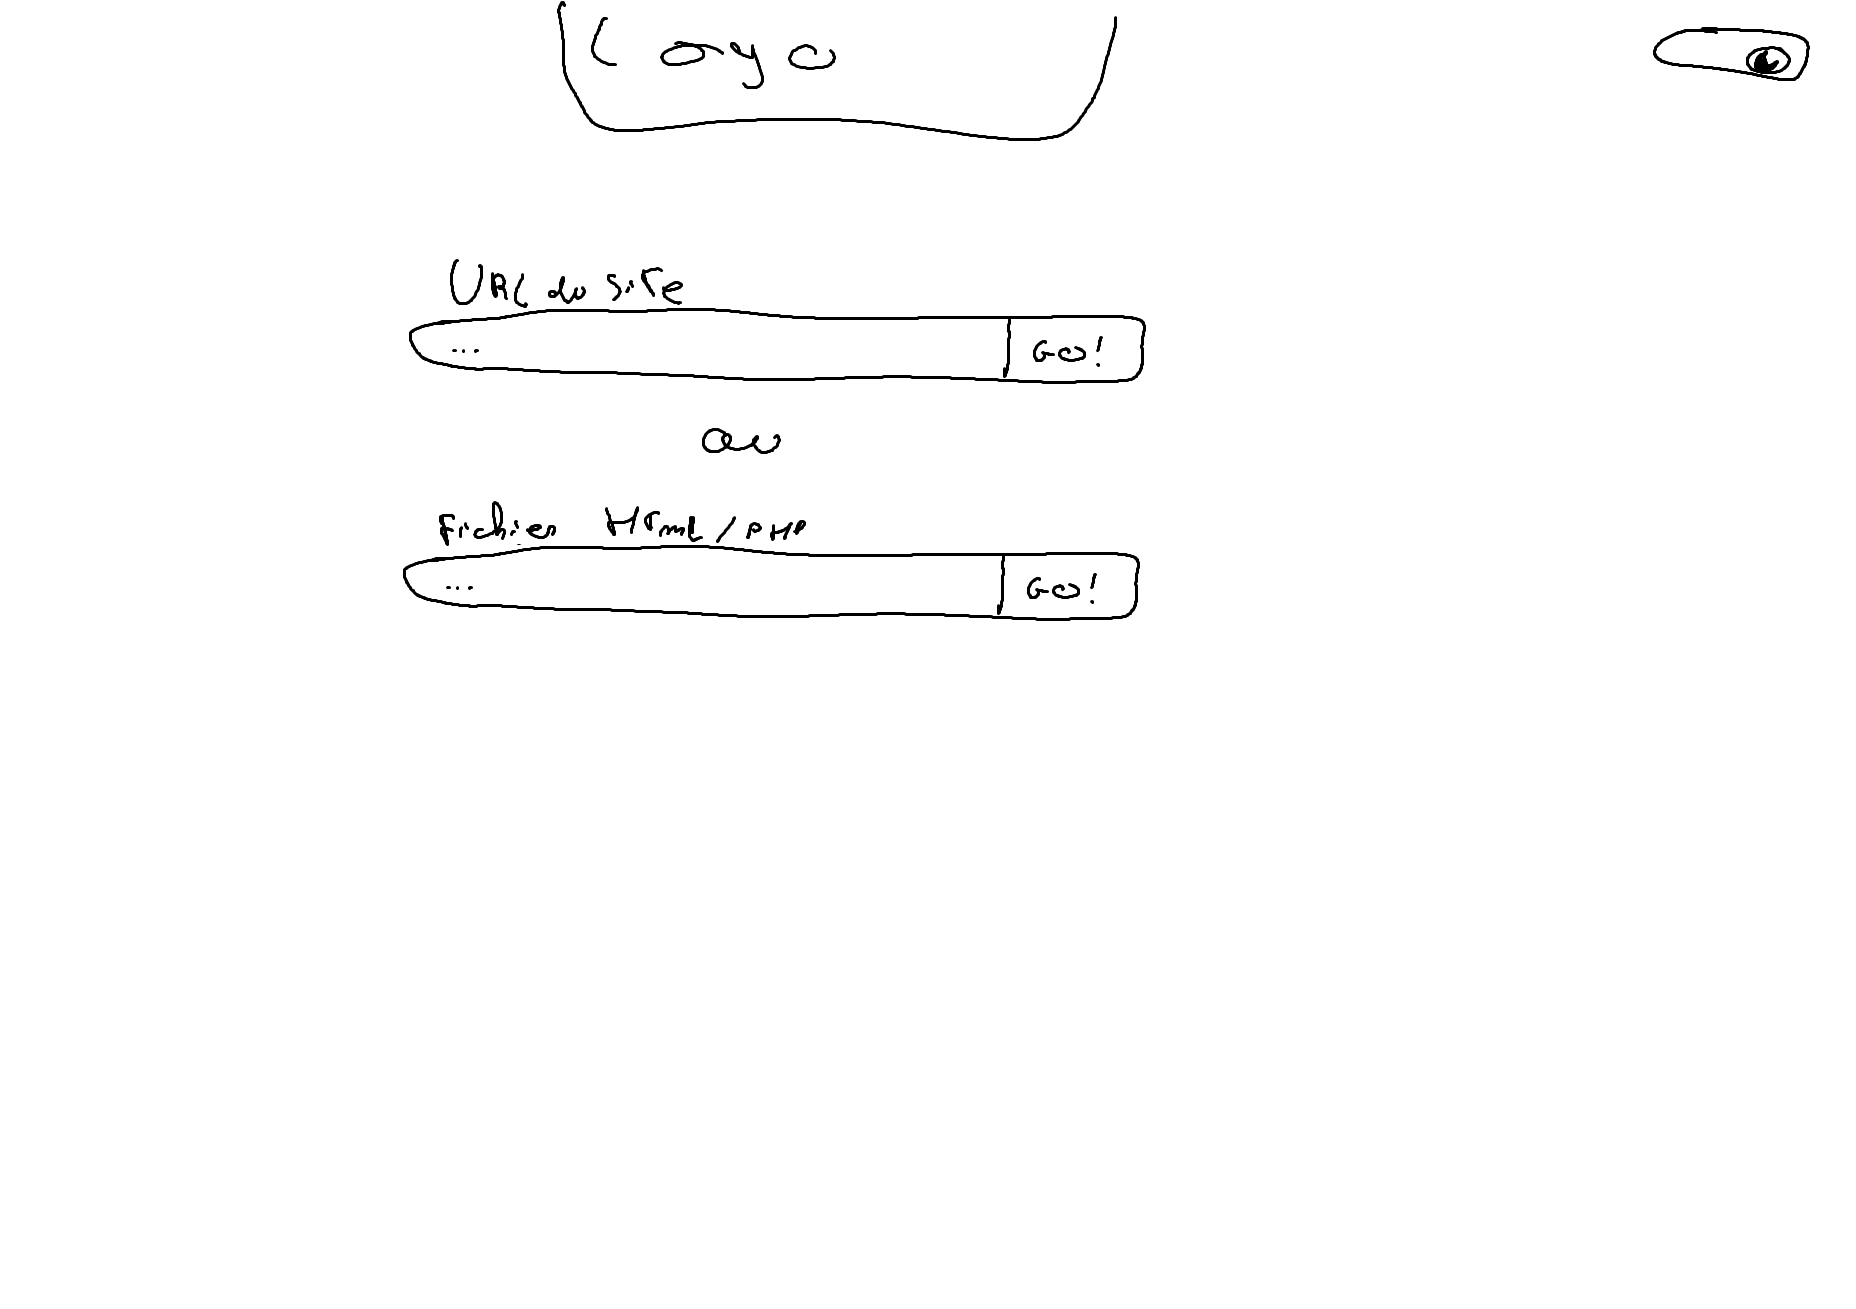 Logo
URL du site
... GO!
ou
Fichier HTML/PHP
... GO!